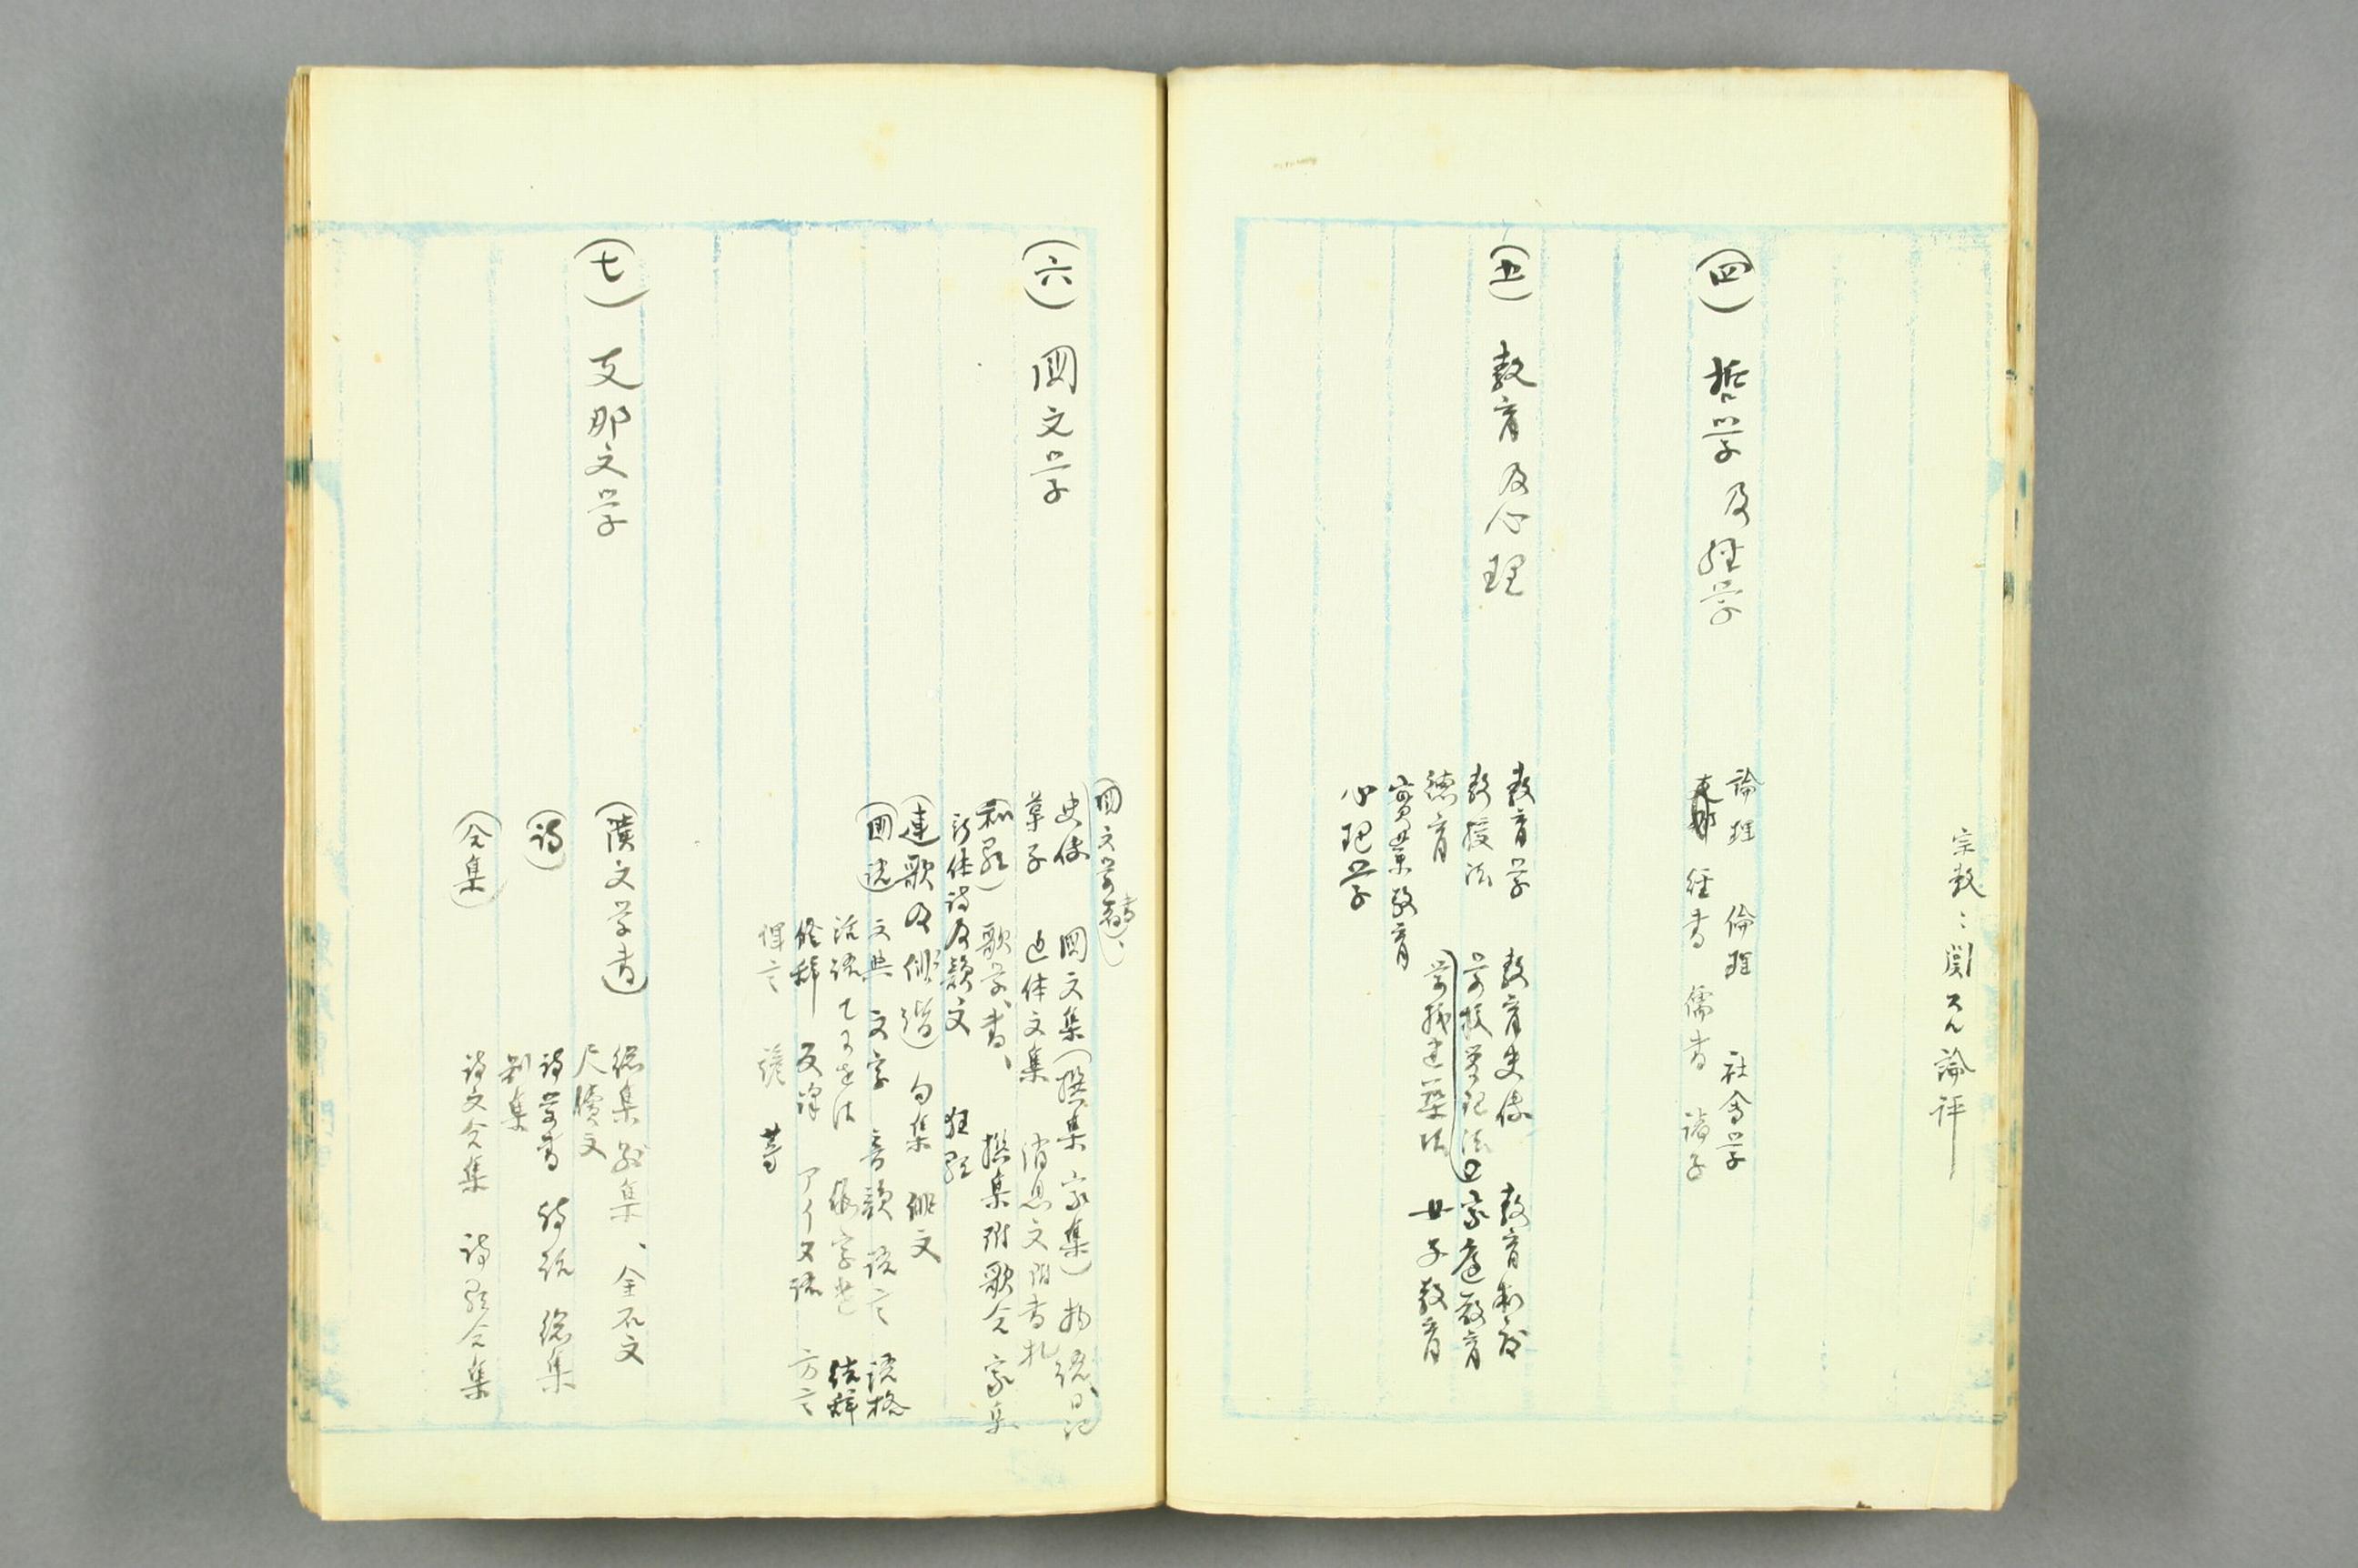 宗教ニ関スル論評
(四) 哲学及経学
論理 倫理 社会学
経書 儒書 諸子
(五) 教育及心理
教育学 教育史伝 教育制度
教授法 学校管理法 家庭教育
徳育 学校建築法 女子教育
実業教育
心理学
(六) 国文学
(国文学書)
史伝 国文集(撰集 家集) 物語、日記
草子 近体文集 消息文附書札
(和歌) 歌学書、 撰集附歌合 家集
新体詩及韻文 狂歌
(連歌及俳諧) 句集 俳文
(国語) 文典 文字 音韻 語格
活語 てにをは 仮字遣
修辞 反譯 アイヌ語 方言
俚言 謎 等
(七) 支那文学
(漢文学書) 総集 別集、金石文
尺牘文
(詩) 詩学書 詩話 総集
別集
(合集) 詩文合集 詩歌合集